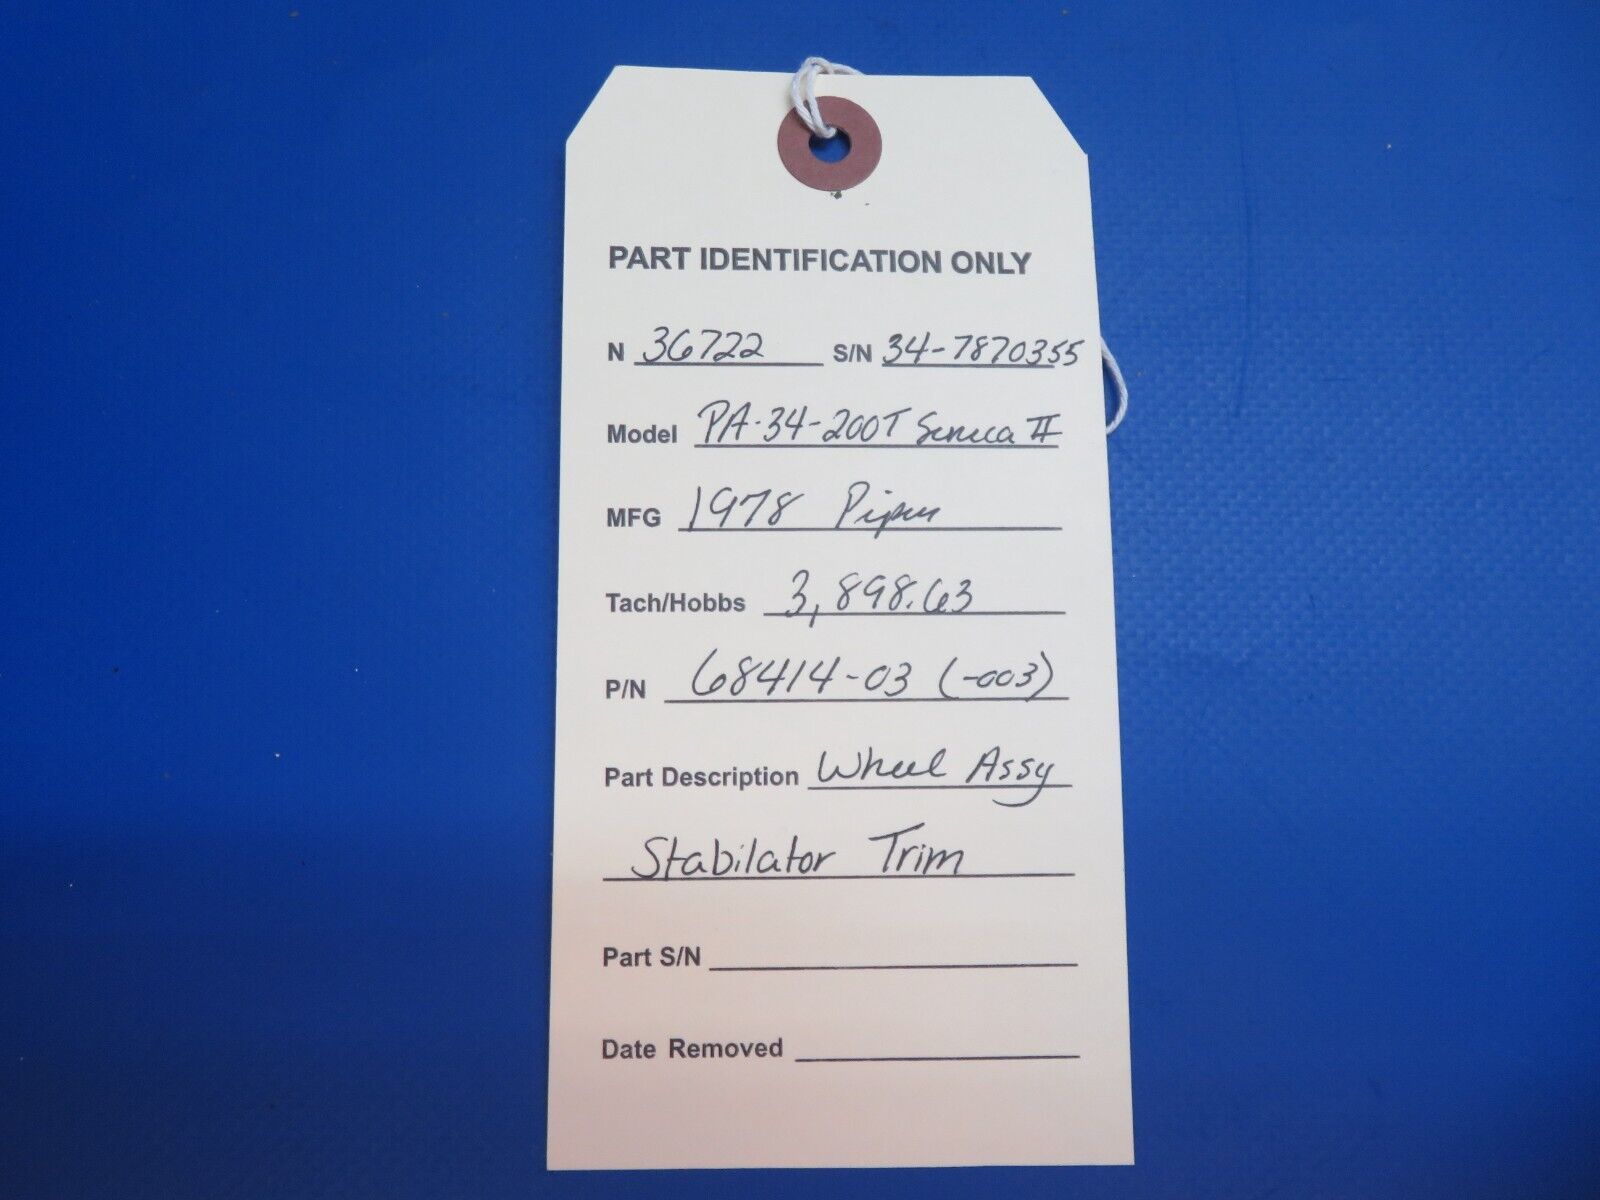 PART IDENTIFICATION ONLY
N 36722 S/N 34-7870355
Model PA-34-200T Seneca II
MFG 1978 Piper
Tach/Hobbs 3,898.63
P/N 68414-03 (-003)
Part Description Wheel Assy
Stabilator Trim
Part S/N
Date Removed